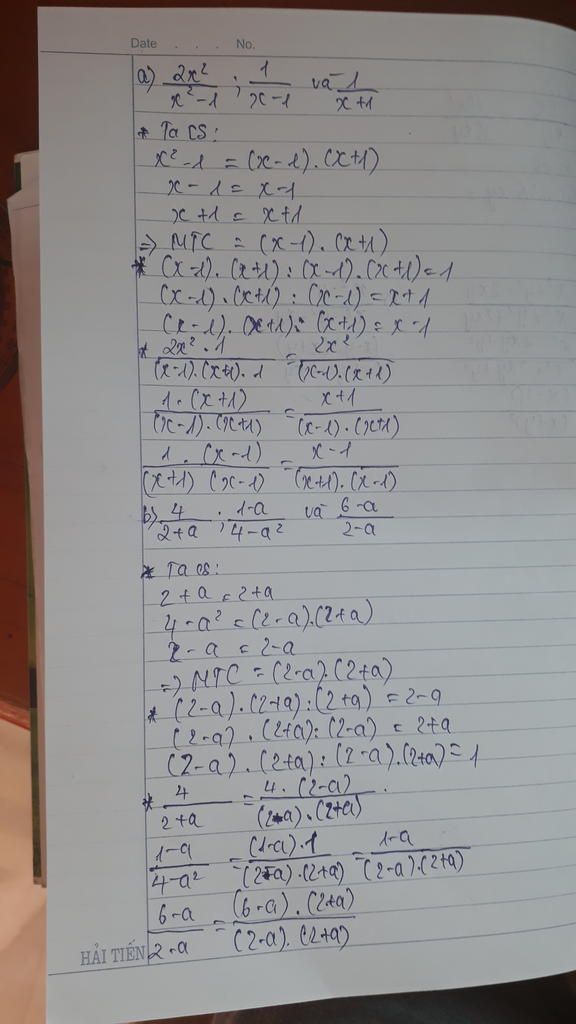 Date . . . No.
a) 2x²/x²-1 ; 1/x-1 và 1/x+1
* Ta có:
x²-1 = (x-1).(x+1)
x-1 = x-1
x+1 = x+1
=> MTC = (x-1).(x+1)
* (x-1).(x+1):(x-1).(x+1)=1
(x-1).(x+1):(x-1)=x+1
(x-1).(x+1):(x+1)=x-1
* 2x².1/(x-1).(x+1).1 = 2x²/(x-1).(x+1)
1.(x+1)/(x-1).(x+1) = x+1/(x-1).(x+1)
1.(x-1)/(x+1) (x-1) = x-1/(x+1).(x-1)
b) 4/2+a ; 1-a/4-a² và 6-a/2-a
* Ta có:
2+a = 2+a
4-a² = (2-a).(2+a)
2-a = 2-a
=> MTC = (2-a).(2+a)
* (2-a).(2+a):(2+a) = 2-a
(2-a).(2+a):(2-a) = 2+a
(2-a).(2+a):(2-a).(2+a)=1
* 4/2+a = 4.(2-a)/(2-a).(2+a)
1-a/4-a² = (1-a).1/(2-a).(2+a) = 1-a/(2-a).(2+a)
6-a/2-a = (6-a).(2+a)/(2-a).(2+a)
HẢI TIẾN